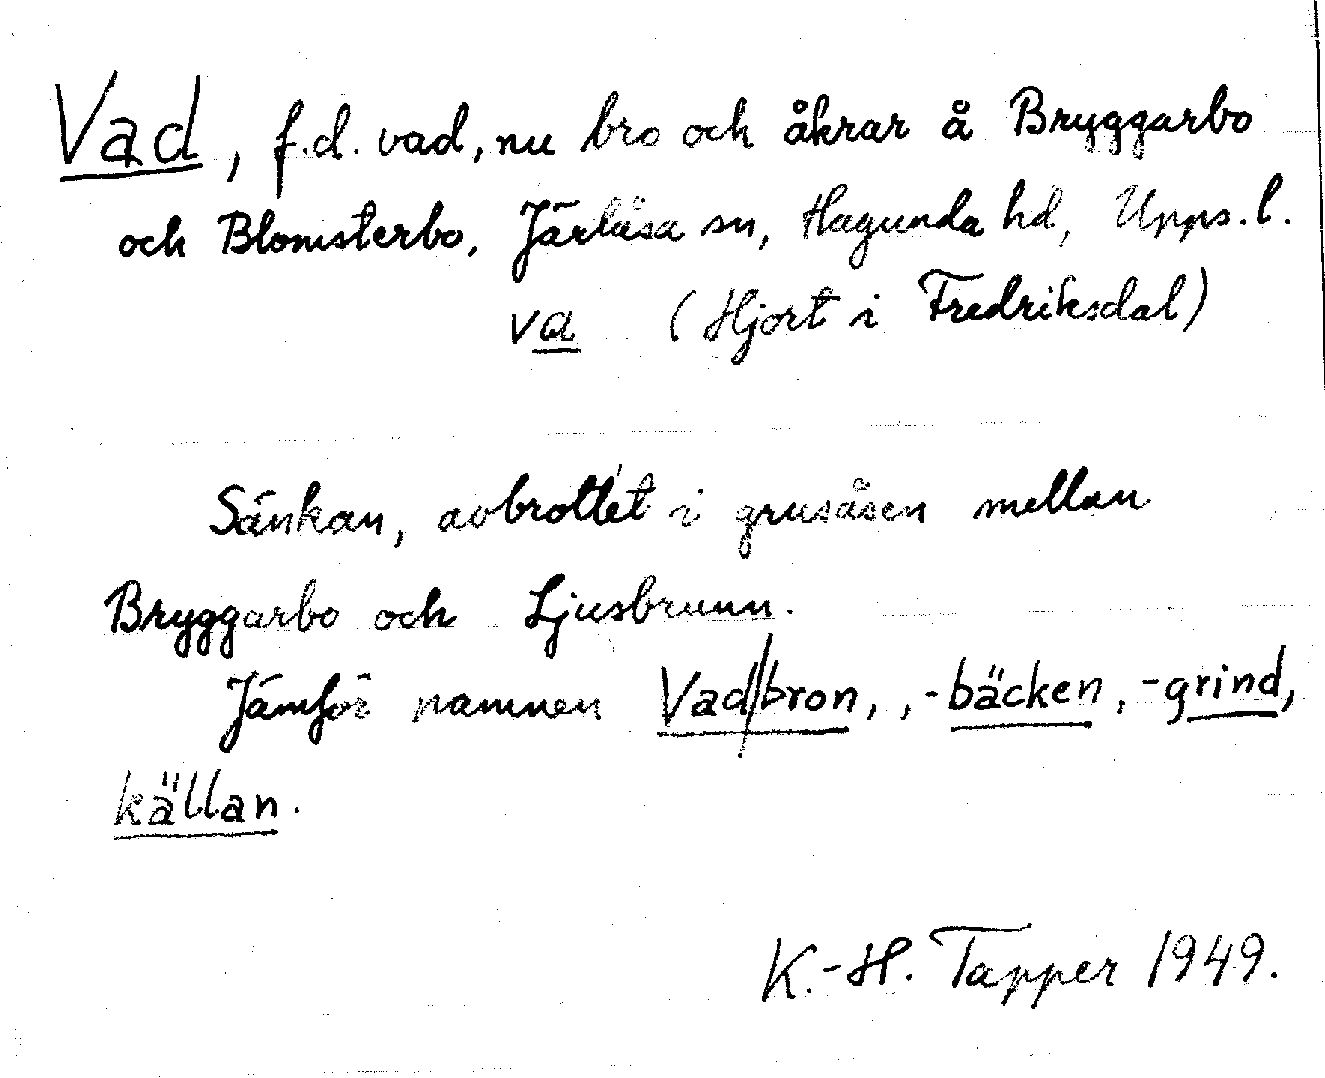 Vad, f.d. vad, nu bro och åkrar å Bryggarbo
och Blomsterbo, Järlåsa sn, Hagunda hd, Upps. l.
va (Hjort i Fredriksdal)
Sänkan, avbrottet i grusåsen mellan
Bryggarbo och Ljusbrunn.
Jämför namnen Vad/bron, , -bäcken, -grind,
källan.
K.-H. Tapper 1949.